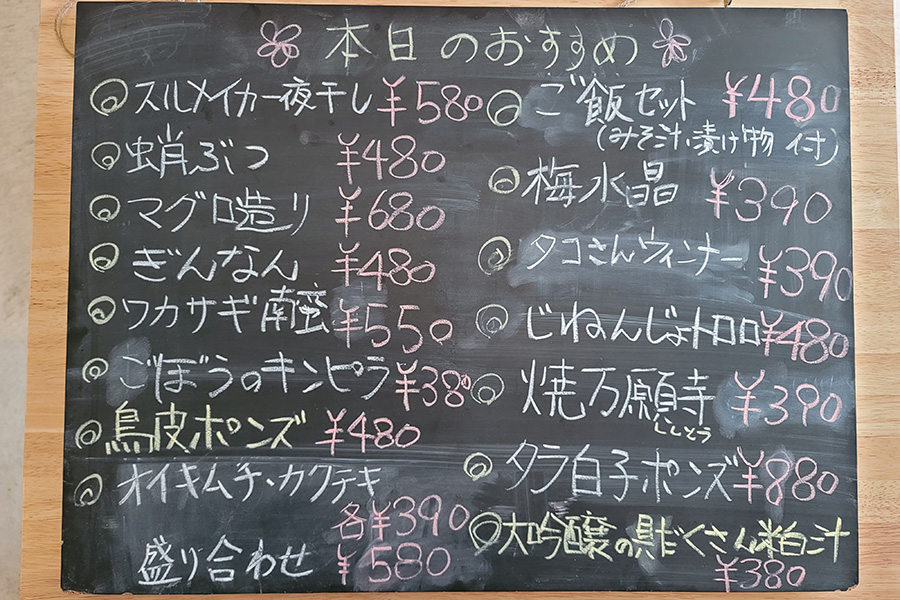 本日のおすすめ
スルメイカ一夜干し ¥580
蛸ぶつ ¥480
マグロ造り ¥680
ぎんなん ¥480
ワカサギ南蛮 ¥550
ごぼうのキンピラ ¥380
鳥皮ポンズ ¥480
オイキムチ・カクテキ
各¥390
盛り合わせ ¥580
ご飯セット ¥480
(みそ汁、漬け物 付)
梅水晶 ¥390
タコさんウィンナー ¥390
じねんじょトロロ ¥480
焼万願寺 ¥390
ししとう
タラ白子ポンズ ¥880
大吟醸の具だくさん粕汁
¥380